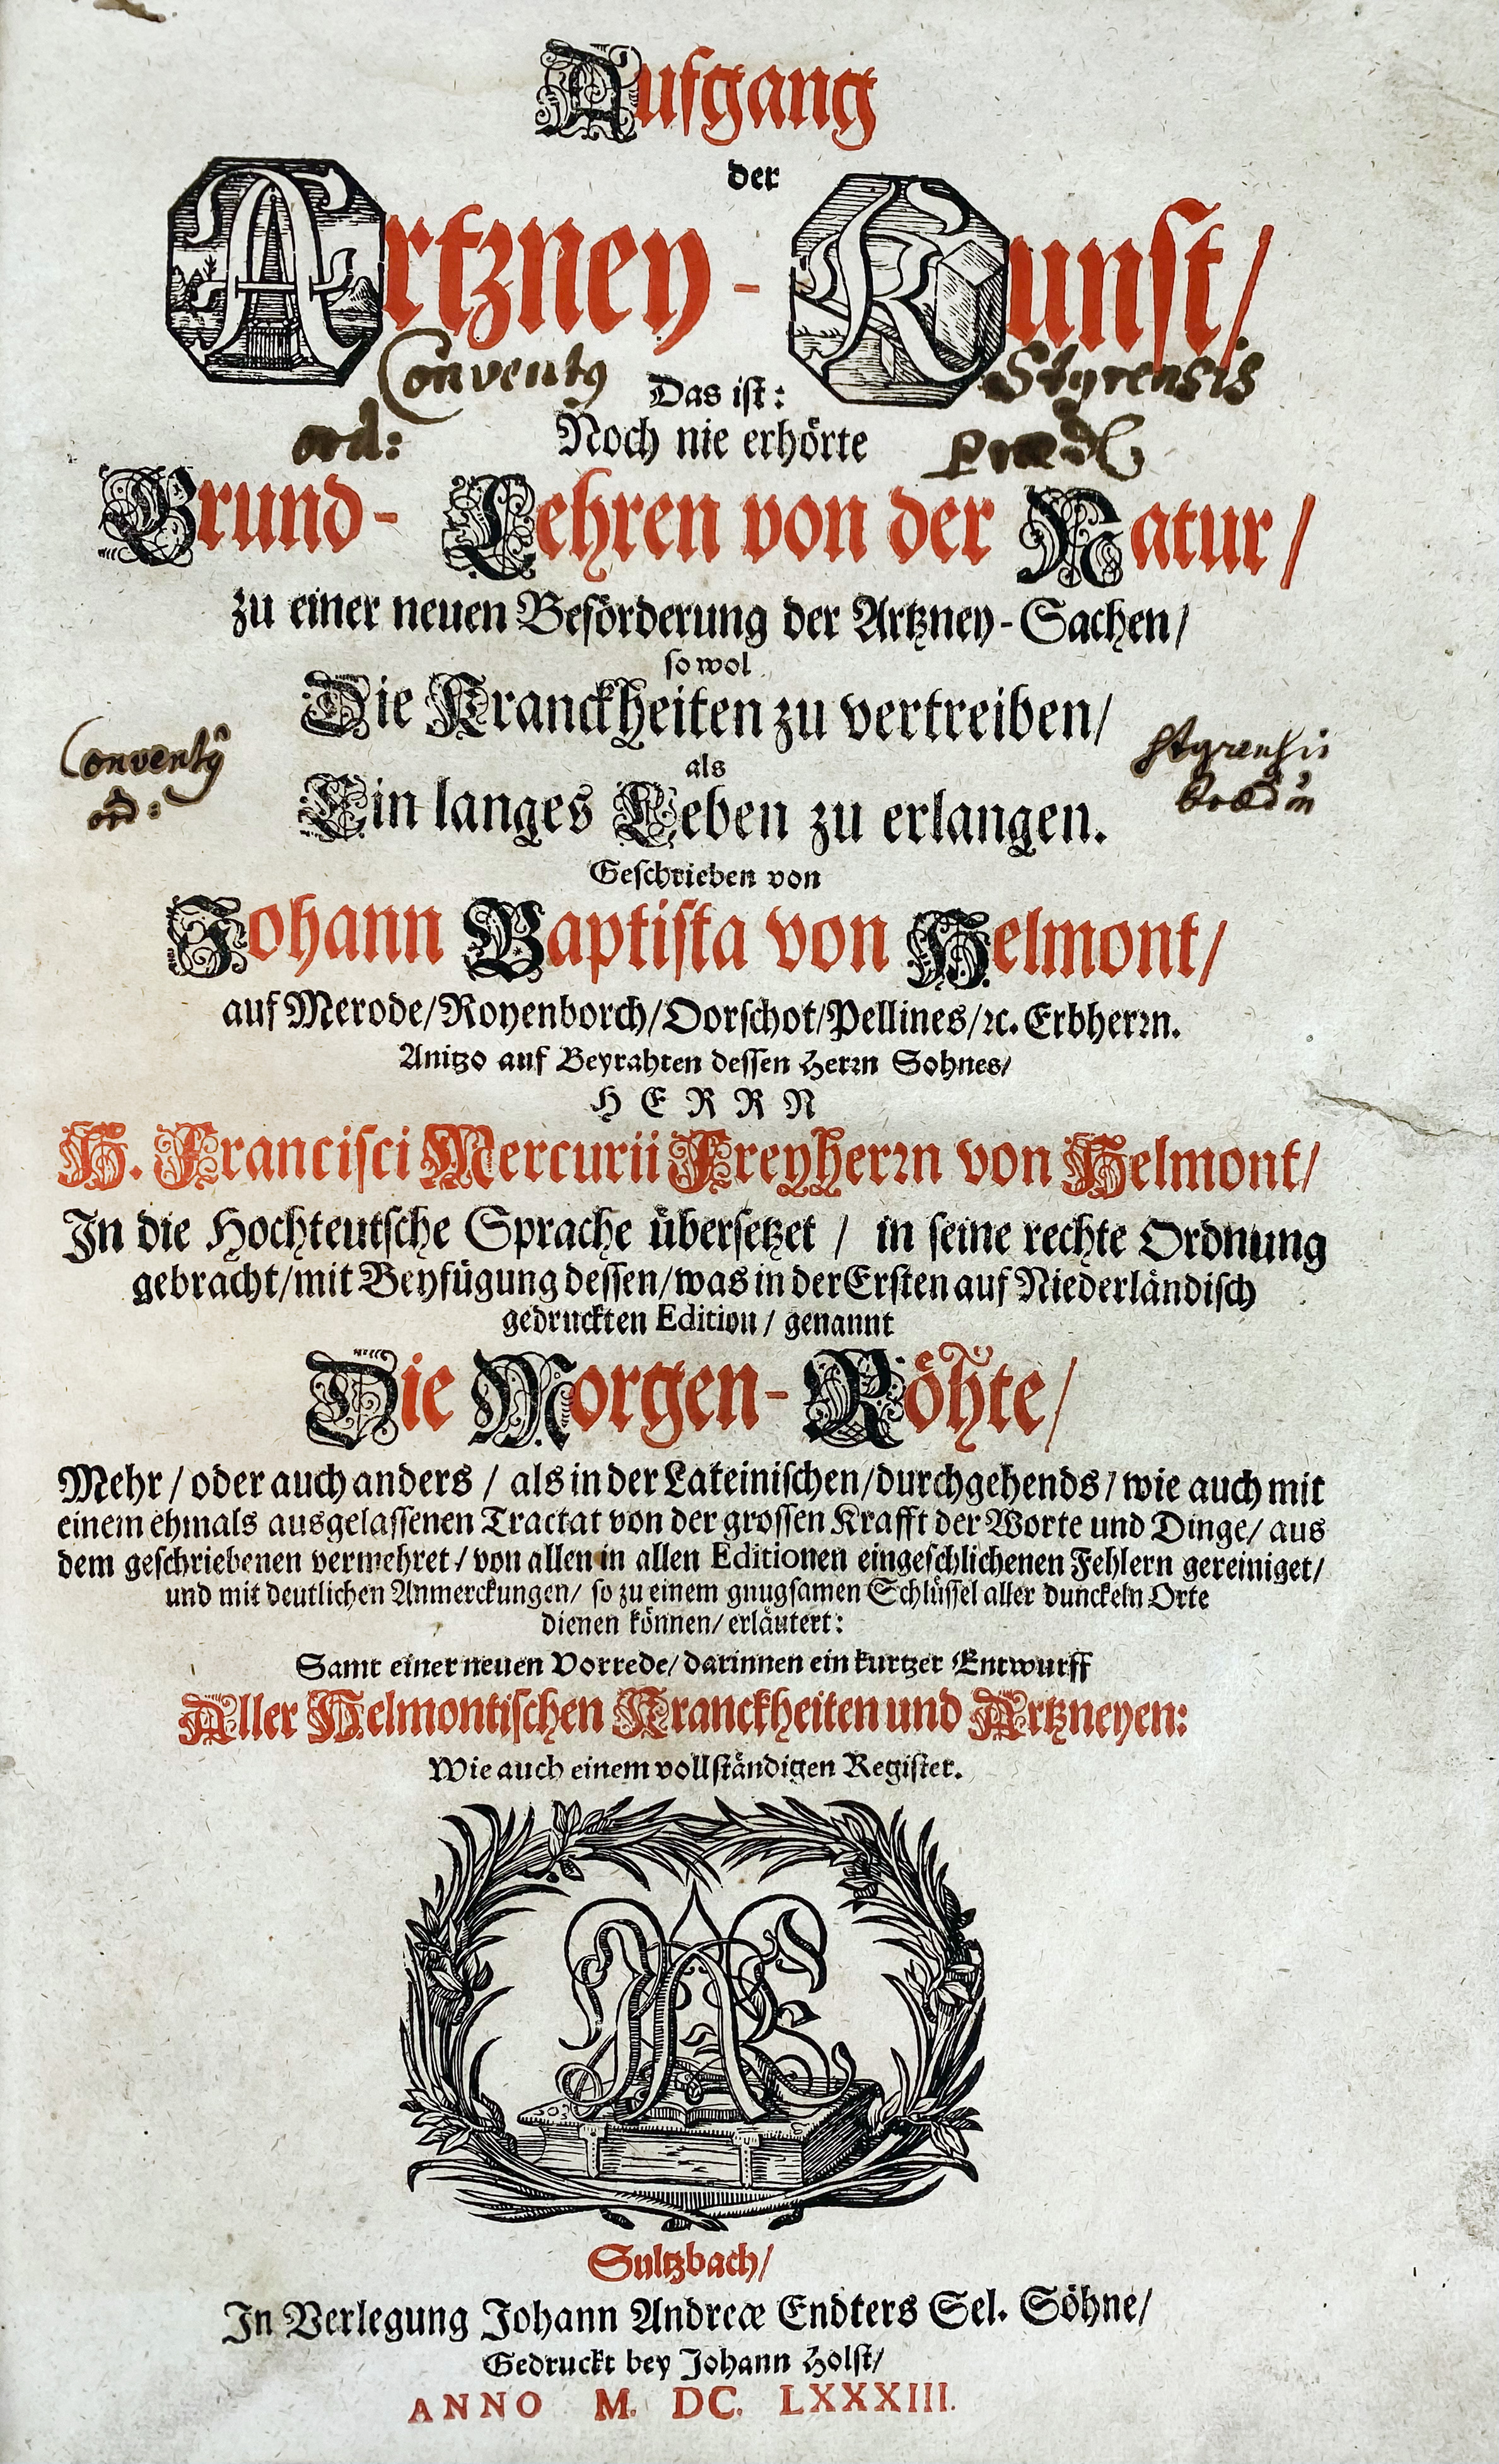 Aufgang
der
Artzney-Kunst/
Conventus Das ist: Styrensis
ord: Noch nie erhörte Præd.
Grund-Lehren von der Natur/
zu einer neuen Beförderung der Artzney-Sachen/
so wol
Die Kranckheiten zu vertreiben/
Conventus Styrensis
als
ord: Præd:
Ein langes Leben zu erlangen.
Geschrieben von
Johann Baptista von Helmont/
auf Merode/Royenborch/Oorschot/Pellines/ꝛc. Erbherꝛn.
Anitzo auf Beyrahten dessen Herꝛn Sohnes/
HERRN
H. Francisci Mercurii Freyherꝛn von Helmont/
In die Hochteutsche Sprache übersetzet / in seine rechte Ordnung
gebracht/mit Beyfügung dessen/was in der Ersten auf Niederländisch
gedruckten Edition/ genannt
Die Morgen-Röhte/
Mehr / oder auch anders / als in der Lateinischen/durchgehends/ wie auch mit
einem ehmals ausgelassenen Tractat von der grossen Krafft der Worte und Dinge/ aus
dem geschriebenen vermehret/ von allen in allen Editionen eingeschlichenen Fehlern gereiniget/
und mit deutlichen Anmerckungen/ so zu einem gnugsamen Schlüssel aller dunckeln Orte
dienen können/ erläutert:
Samt einer neuen Vorrede/ darinnen ein kurtzer Entwurff
Aller Helmontischen Kranckheiten und Artzneyen:
Wie auch einem vollständigen Register.
Sultzbach/
In Verlegung Johann Andreæ Endters Sel. Söhne/
Gedruckt bey Johann Holst/
ANNO M. DC. LXXXIII.